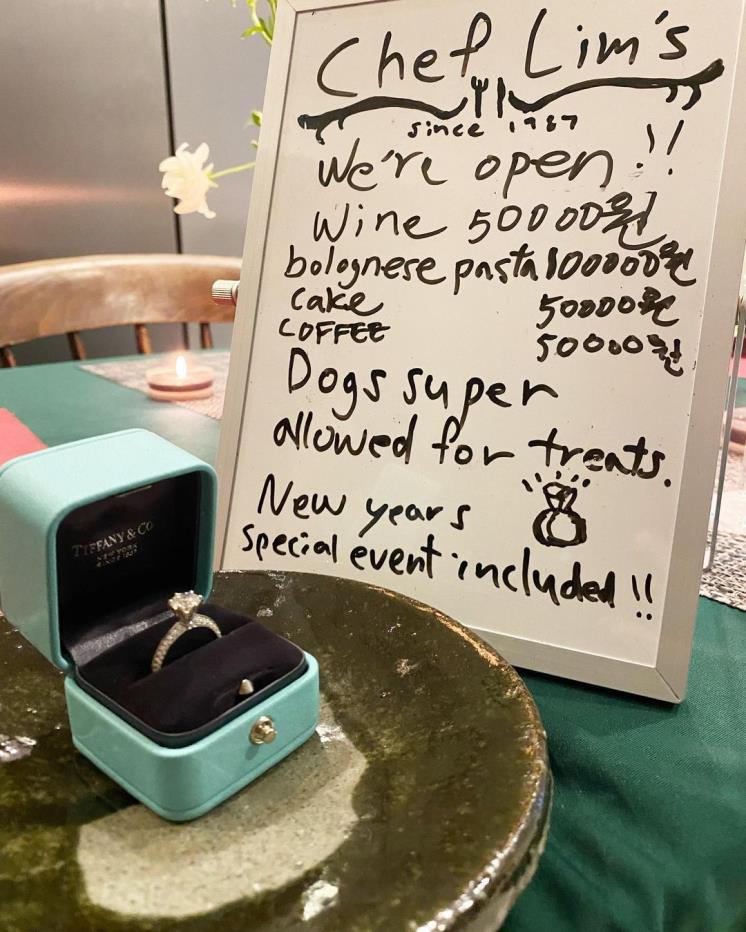 Chef Lim's
since 1987
We're open!!
Wine 50000원
bolognese pasta 100000원
cake 50000원
COFFEE 50000원
Dogs super
allowed for treats.
New years
special event included!!
TIFFANY & CO
NEW YORK
SINCE 1837